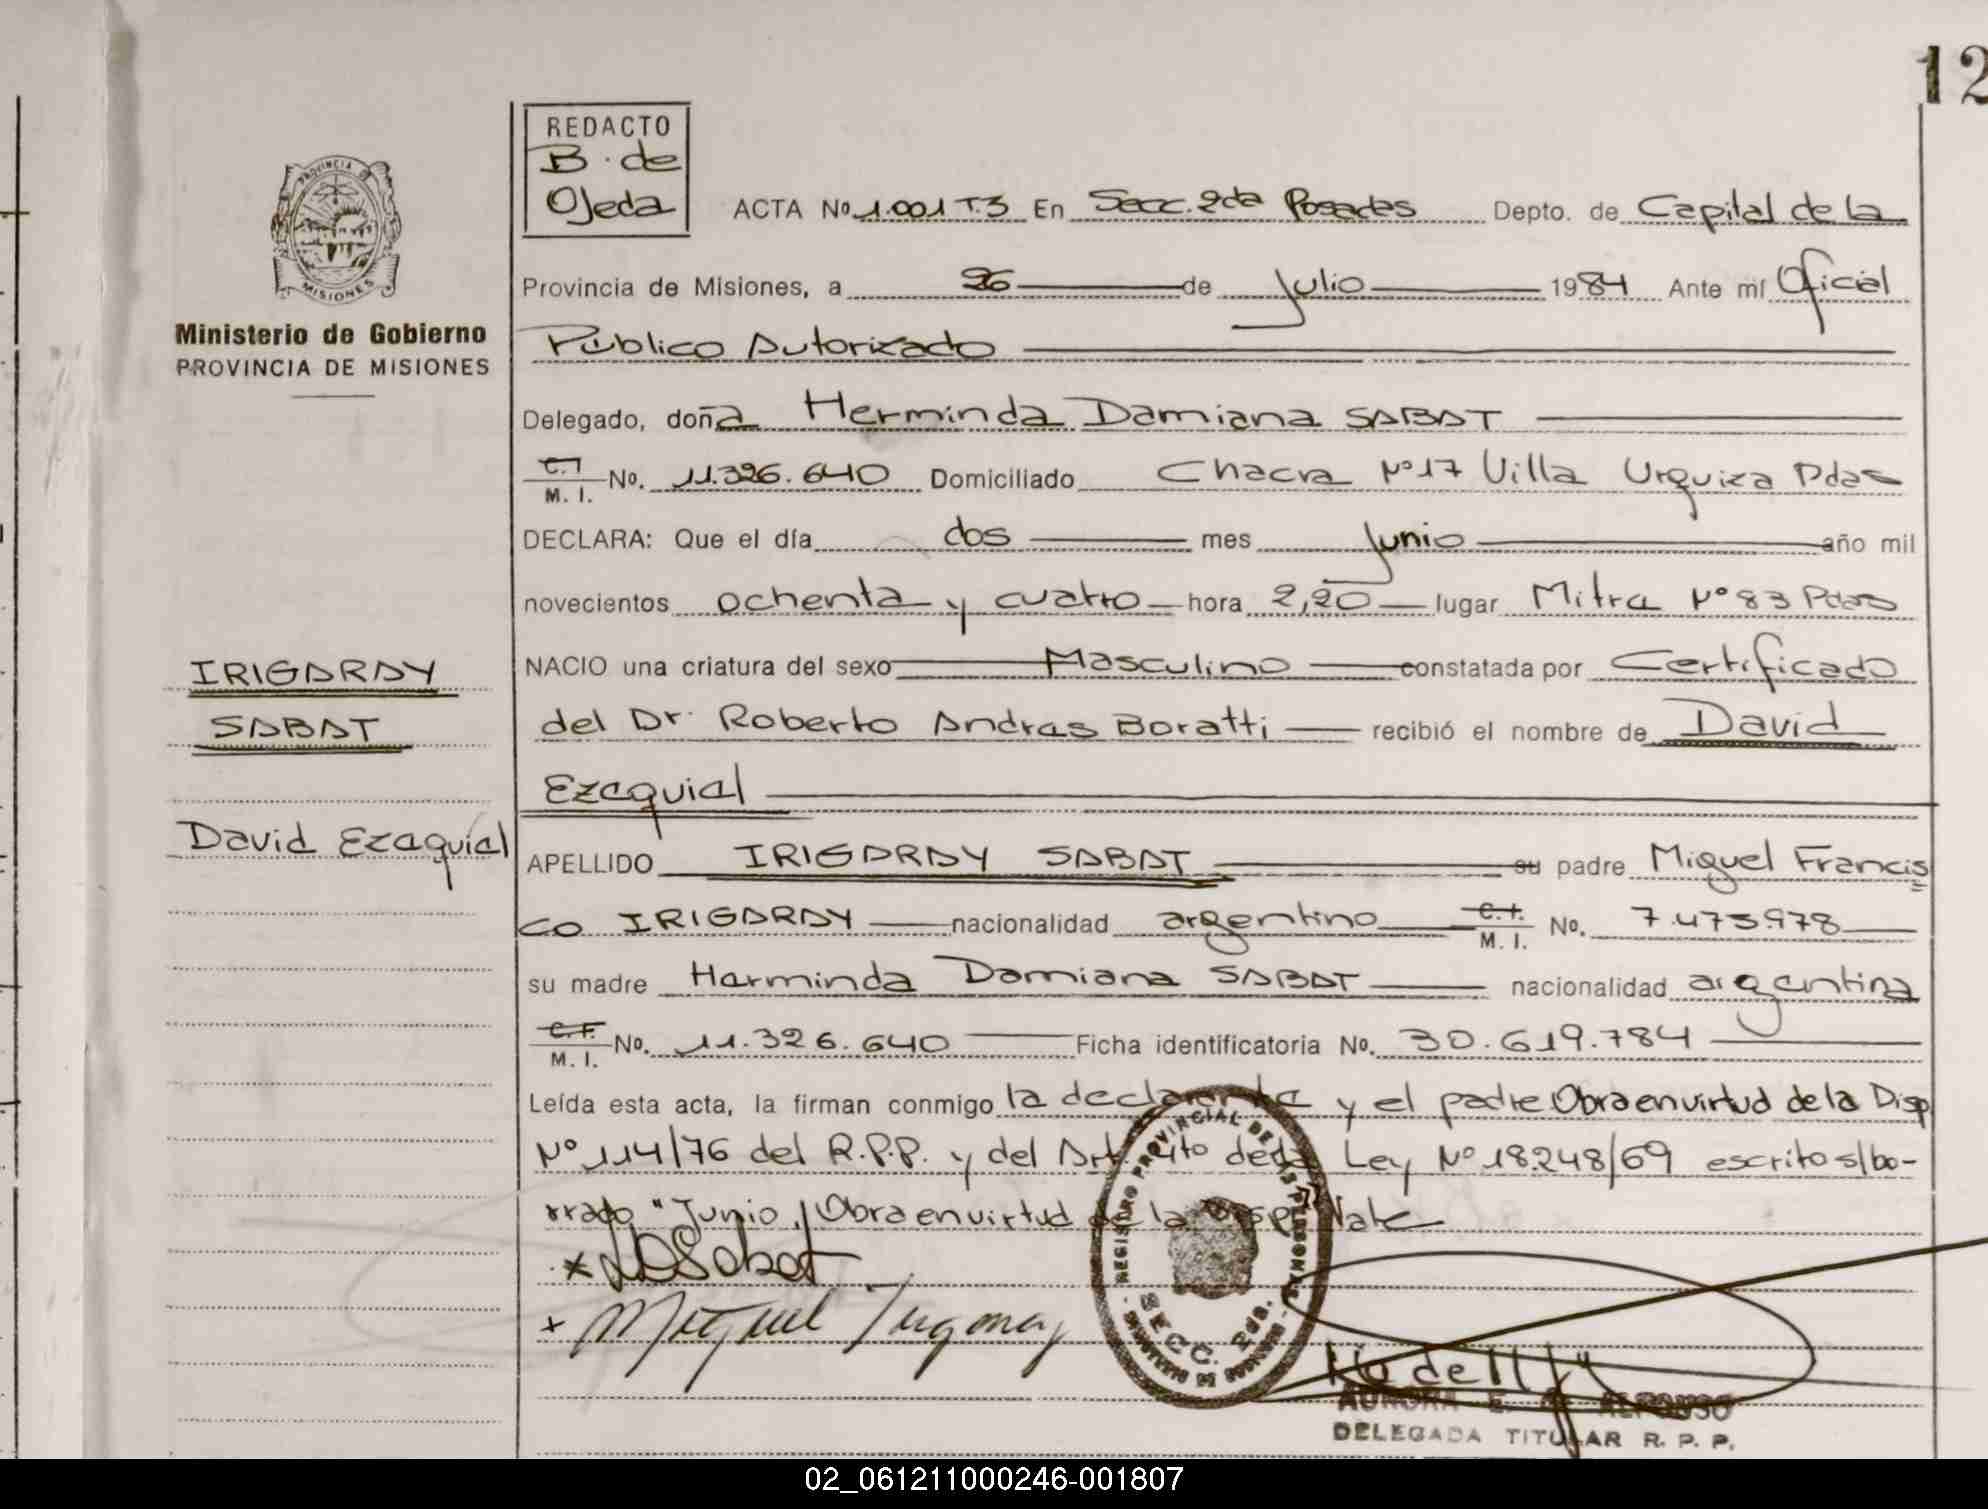 12
REDACTO
B. de
Ojeda
PROVINCIA DE
MISIONES
Ministerio de Gobierno
PROVINCIA DE MISIONES
ACTA No 1.001 T.3 En Secc. 2da Posadas Depto. de Capital de la
Provincia de Misiones, a 26 de Julio 1984 Ante mí Oficial
Público Autorizado
Delegado, doña Herminda Damiana SABAT
C.I. M. I. No. 11.326.640 Domiciliado Chacra Nº17 Villa Urquiza Pdas
DECLARA: Que el día dos mes Junio año mil
novecientos ochenta y cuatro hora 2,20 lugar Mitre Nº 83 Pdas
NACIO una criatura del sexo Masculino constatada por Certificado
del Dr. Roberto Andres Boratti recibió el nombre de David
Ezequiel
IRIGARAY
SABAT
David Ezequiel
APELLIDO IRIGARAY SABAT su padre Miguel Francis
co IRIGARAY nacionalidad argentino C.I. M. I. No. 7.475.978
su madre Herminda Damiana SABAT nacionalidad argentina
C.I. M. I. No. 11.326.640 Ficha identificatoria No. 30.619.784
Leída esta acta, la firman conmigo la declarante y el padre Obra en virtud de la Disp
Nº 114/76 del R.P.P. y del Art. 4to de la Ley Nº 18.248/69 escrito s/bo-
rrado "Junio" Obra en virtud de la Disp Vale
x HDSabat
x Miguel Irigaray
REGISTRO PROVINCIAL DE LAS PERSONAS
SECC. 2da.
AURORA E. ALFONSO
DELEGADA TITULAR R. P. P.
02_061211000246-001807